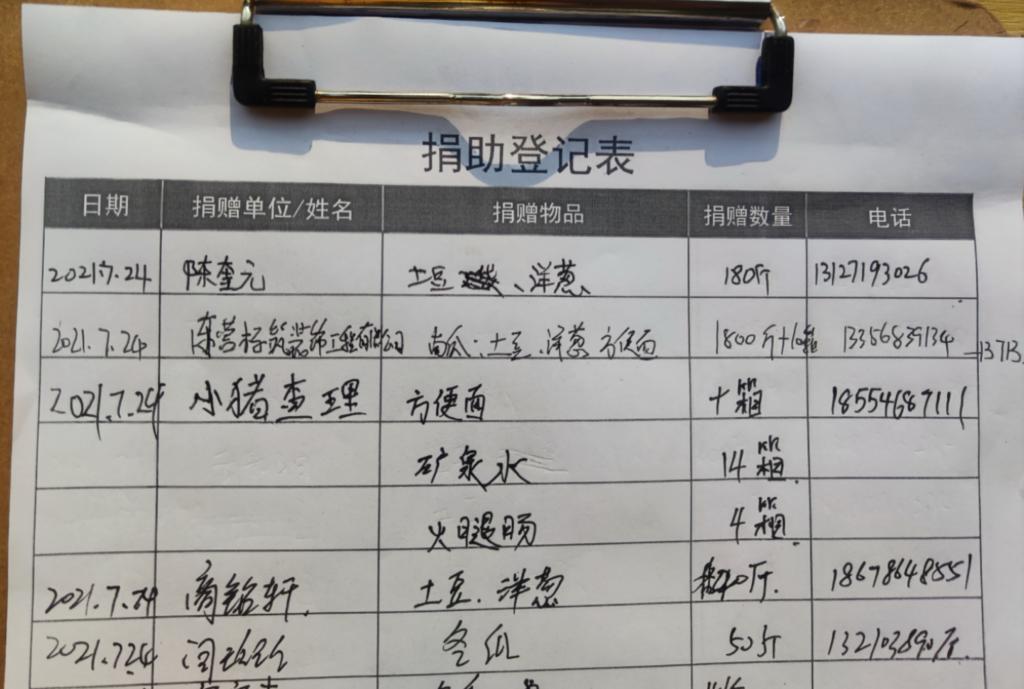 捐助登记表
日期 捐赠单位/姓名 捐赠物品 捐赠数量 电话
2021.7.24 陈奎元 土豆、洋葱 180斤 13127193026
2021.7.24 东营 装饰工程有限公司 南瓜、土豆、洋葱 方便面 1800斤+10箱 13713
2021.7.24 小猪查理 方便面 十箱 18554687111
矿泉水 14箱
火腿肠 4箱
2021.7.24 商铭轩 土豆、洋葱 斤 18678648551
2021.7.24 冬瓜 50斤